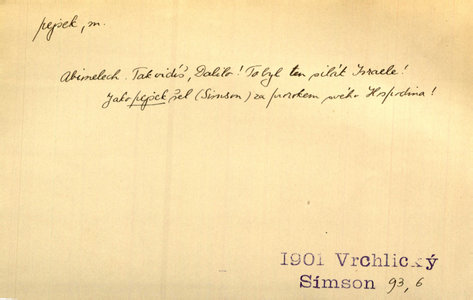 pejsek, m.
Abimelech. Tak vidíš, Dalilo! To byl ten silák Israele!
Jako pejsek šel (Simson) za prorokem svého Hospodina!
1901 Vrchlický
Simson 93,6